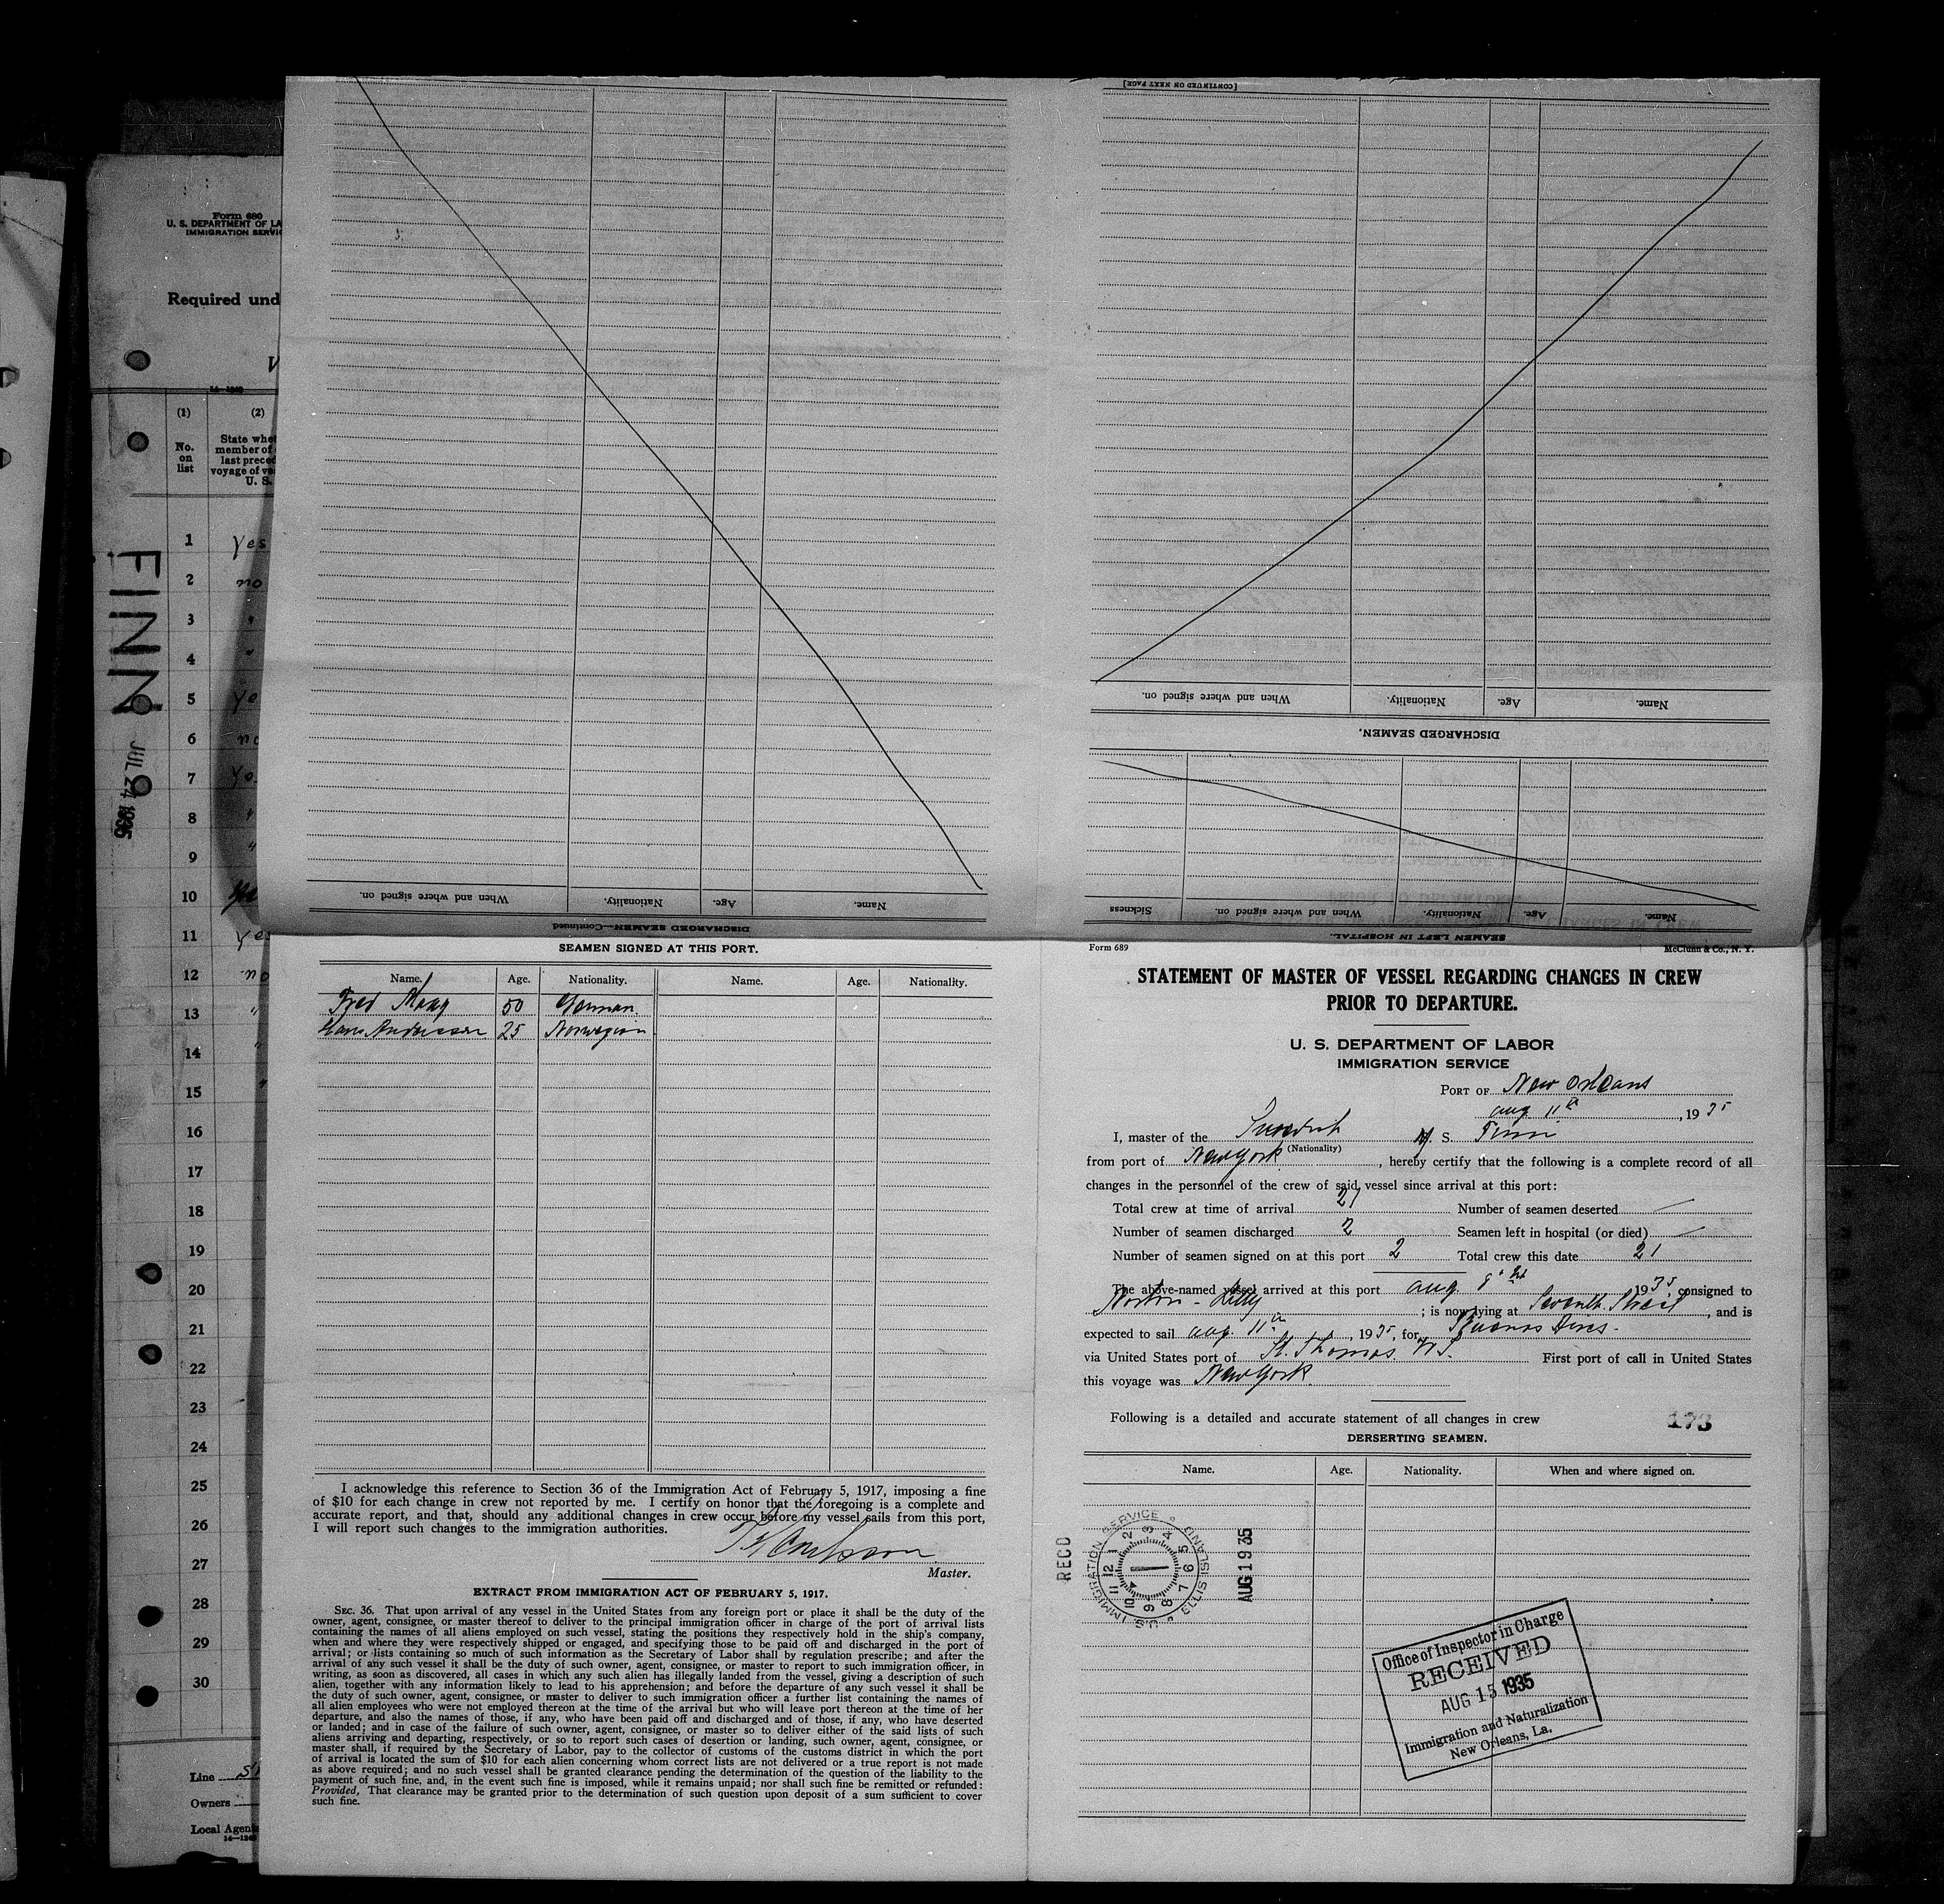 Form 680
U. S. DEPARTMENT OF LA
IMMIGRATION SERVIC
Required und
V
14—1240
(1)
(2)
No.
on
list
State whet
member of
last preced
voyage of ve
U. S.
1 Yes
2 no
3 "
4 "
5 Ye
6 no
7 Ye
8 "
9 "
10
11 Ye
12 no
13 "
14 "
15 "
16
17
18
19
20
21
22
23
24
25
26
27
28
29
30
FINN
JUL 24 1935
Line
Owners
Local Agent
14—1240
[CONTINUED ON NEXT PAGE]
Name. Age. Nationality. When and where signed on.
DISCHARGED SEAMEN.
Name. Age. Nationality. When and where signed on. Sickness
SEAMEN LEFT IN HOSPITAL.
Name. Age. Nationality. When and where signed on.
DISCHARGED SEAMEN—Continued
SEAMEN SIGNED AT THIS PORT.
Name. Age. Nationality. Name. Age. Nationality.
Fred Maag 50 German
Hans Andersson 25 Norwegian
I acknowledge this reference to Section 36 of the Immigration Act of February 5, 1917, imposing a fine
of $10 for each change in crew not reported by me. I certify on honor that the foregoing is a complete and
accurate report, and that, should any additional changes in crew occur before my vessel sails from this port,
I will report such changes to the immigration authorities.
Master.
EXTRACT FROM IMMIGRATION ACT OF FEBRUARY 5, 1917.
SEC. 36. That upon arrival of any vessel in the United States from any foreign port or place it shall be the duty of the
owner, agent, consignee, or master thereof to deliver to the principal immigration officer in charge of the port of arrival lists
containing the names of all aliens employed on such vessel, stating the positions they respectively hold in the ship's company,
when and where they were respectively shipped or engaged, and specifying those to be paid off and discharged in the port of
arrival; or lists containing so much of such information as the Secretary of Labor shall by regulation prescribe; and after the
arrival of any such vessel it shall be the duty of such owner, agent, consignee, or master to report to such immigration officer, in
writing, as soon as discovered, all cases in which any such alien has illegally landed from the vessel, giving a description of such
alien, together with any information likely to lead to his apprehension; and before the departure of any such vessel it shall be
the duty of such owner, agent, consignee, or master to deliver to such immigration officer a further list containing the names of
all alien employees who were not employed thereon at the time of the arrival but who will leave port thereon at the time of her
departure, and also the names of those, if any, who have been paid off and discharged and of those, if any, who have deserted
or landed; and in case of the failure of such owner, agent, consignee, or master so to deliver either of the said lists of such
aliens arriving and departing, respectively, or so to report such cases of desertion or landing, such owner, agent, consignee, or
master shall, if required by the Secretary of Labor, pay to the collector of customs of the customs district in which the port
of arrival is located the sum of $10 for each alien concerning whom correct lists are not delivered or a true report is not made
as above required; and no such vessel shall be granted clearance pending the determination of the question of the liability to the
payment of such fine, and, in the event such fine is imposed, while it remains unpaid; nor shall such fine be remitted or refunded:
Provided, That clearance may be granted prior to the determination of such question upon deposit of a sum sufficient to cover
such fine.
Form 689
McClunn & Co., N. Y.
STATEMENT OF MASTER OF VESSEL REGARDING CHANGES IN CREW
PRIOR TO DEPARTURE.
U. S. DEPARTMENT OF LABOR
IMMIGRATION SERVICE
PORT OF New Orleans
aug 11th, 1935
I, master of the Swedish M. S. Finn
(Nationality)
from port of New York, hereby certify that the following is a complete record of all
changes in the personnel of the crew of said vessel since arrival at this port:
Total crew at time of arrival 21 Number of seamen deserted —
Number of seamen discharged 2 Seamen left in hospital (or died) —
Number of seamen signed on at this port 2 Total crew this date 21
The above-named vessel arrived at this port aug. 8th 1935, consigned to
Norton - Lilly; is now lying at Seventh Street, and is
expected to sail aug. 11th, 1935, for Buenos Aires.
via United States port of St. Thomas. First port of call in United States
this voyage was New York
Following is a detailed and accurate statement of all changes in crew
173
DERSERTING SEAMEN.
Name. Age. Nationality. When and where signed on.
RECD
U.S. IMMIGRATION SERVICE ELLIS ISLAND
1 2 3 4 5 6 7 8 9 10 11 12
AUG 19 35
Office of Inspector in Charge
RECEIVED
AUG 15 1935
Immigration and Naturalization
New Orleans, La.